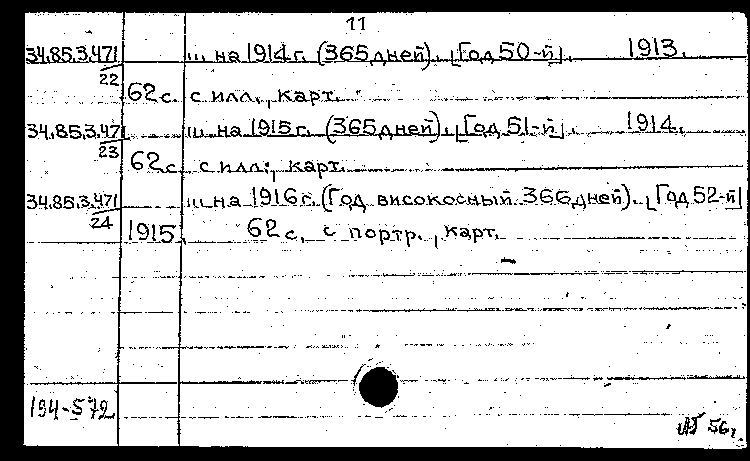 11
34.85.3.471/22 ... на 1914 г. (365 дней). [Год 50-й]. 1913.
62 с. с илл., карт.
34.85.3.471/23 ... на 1915 г. (365 дней). [Год 51-й]. 1914.
62 с. с илл., карт.
34.85.3.471/24 ... на 1916 г. (Год високосный 366 дней). [Год 52-й]
1915. 62 с. с портр., карт.
194-572
56 г.